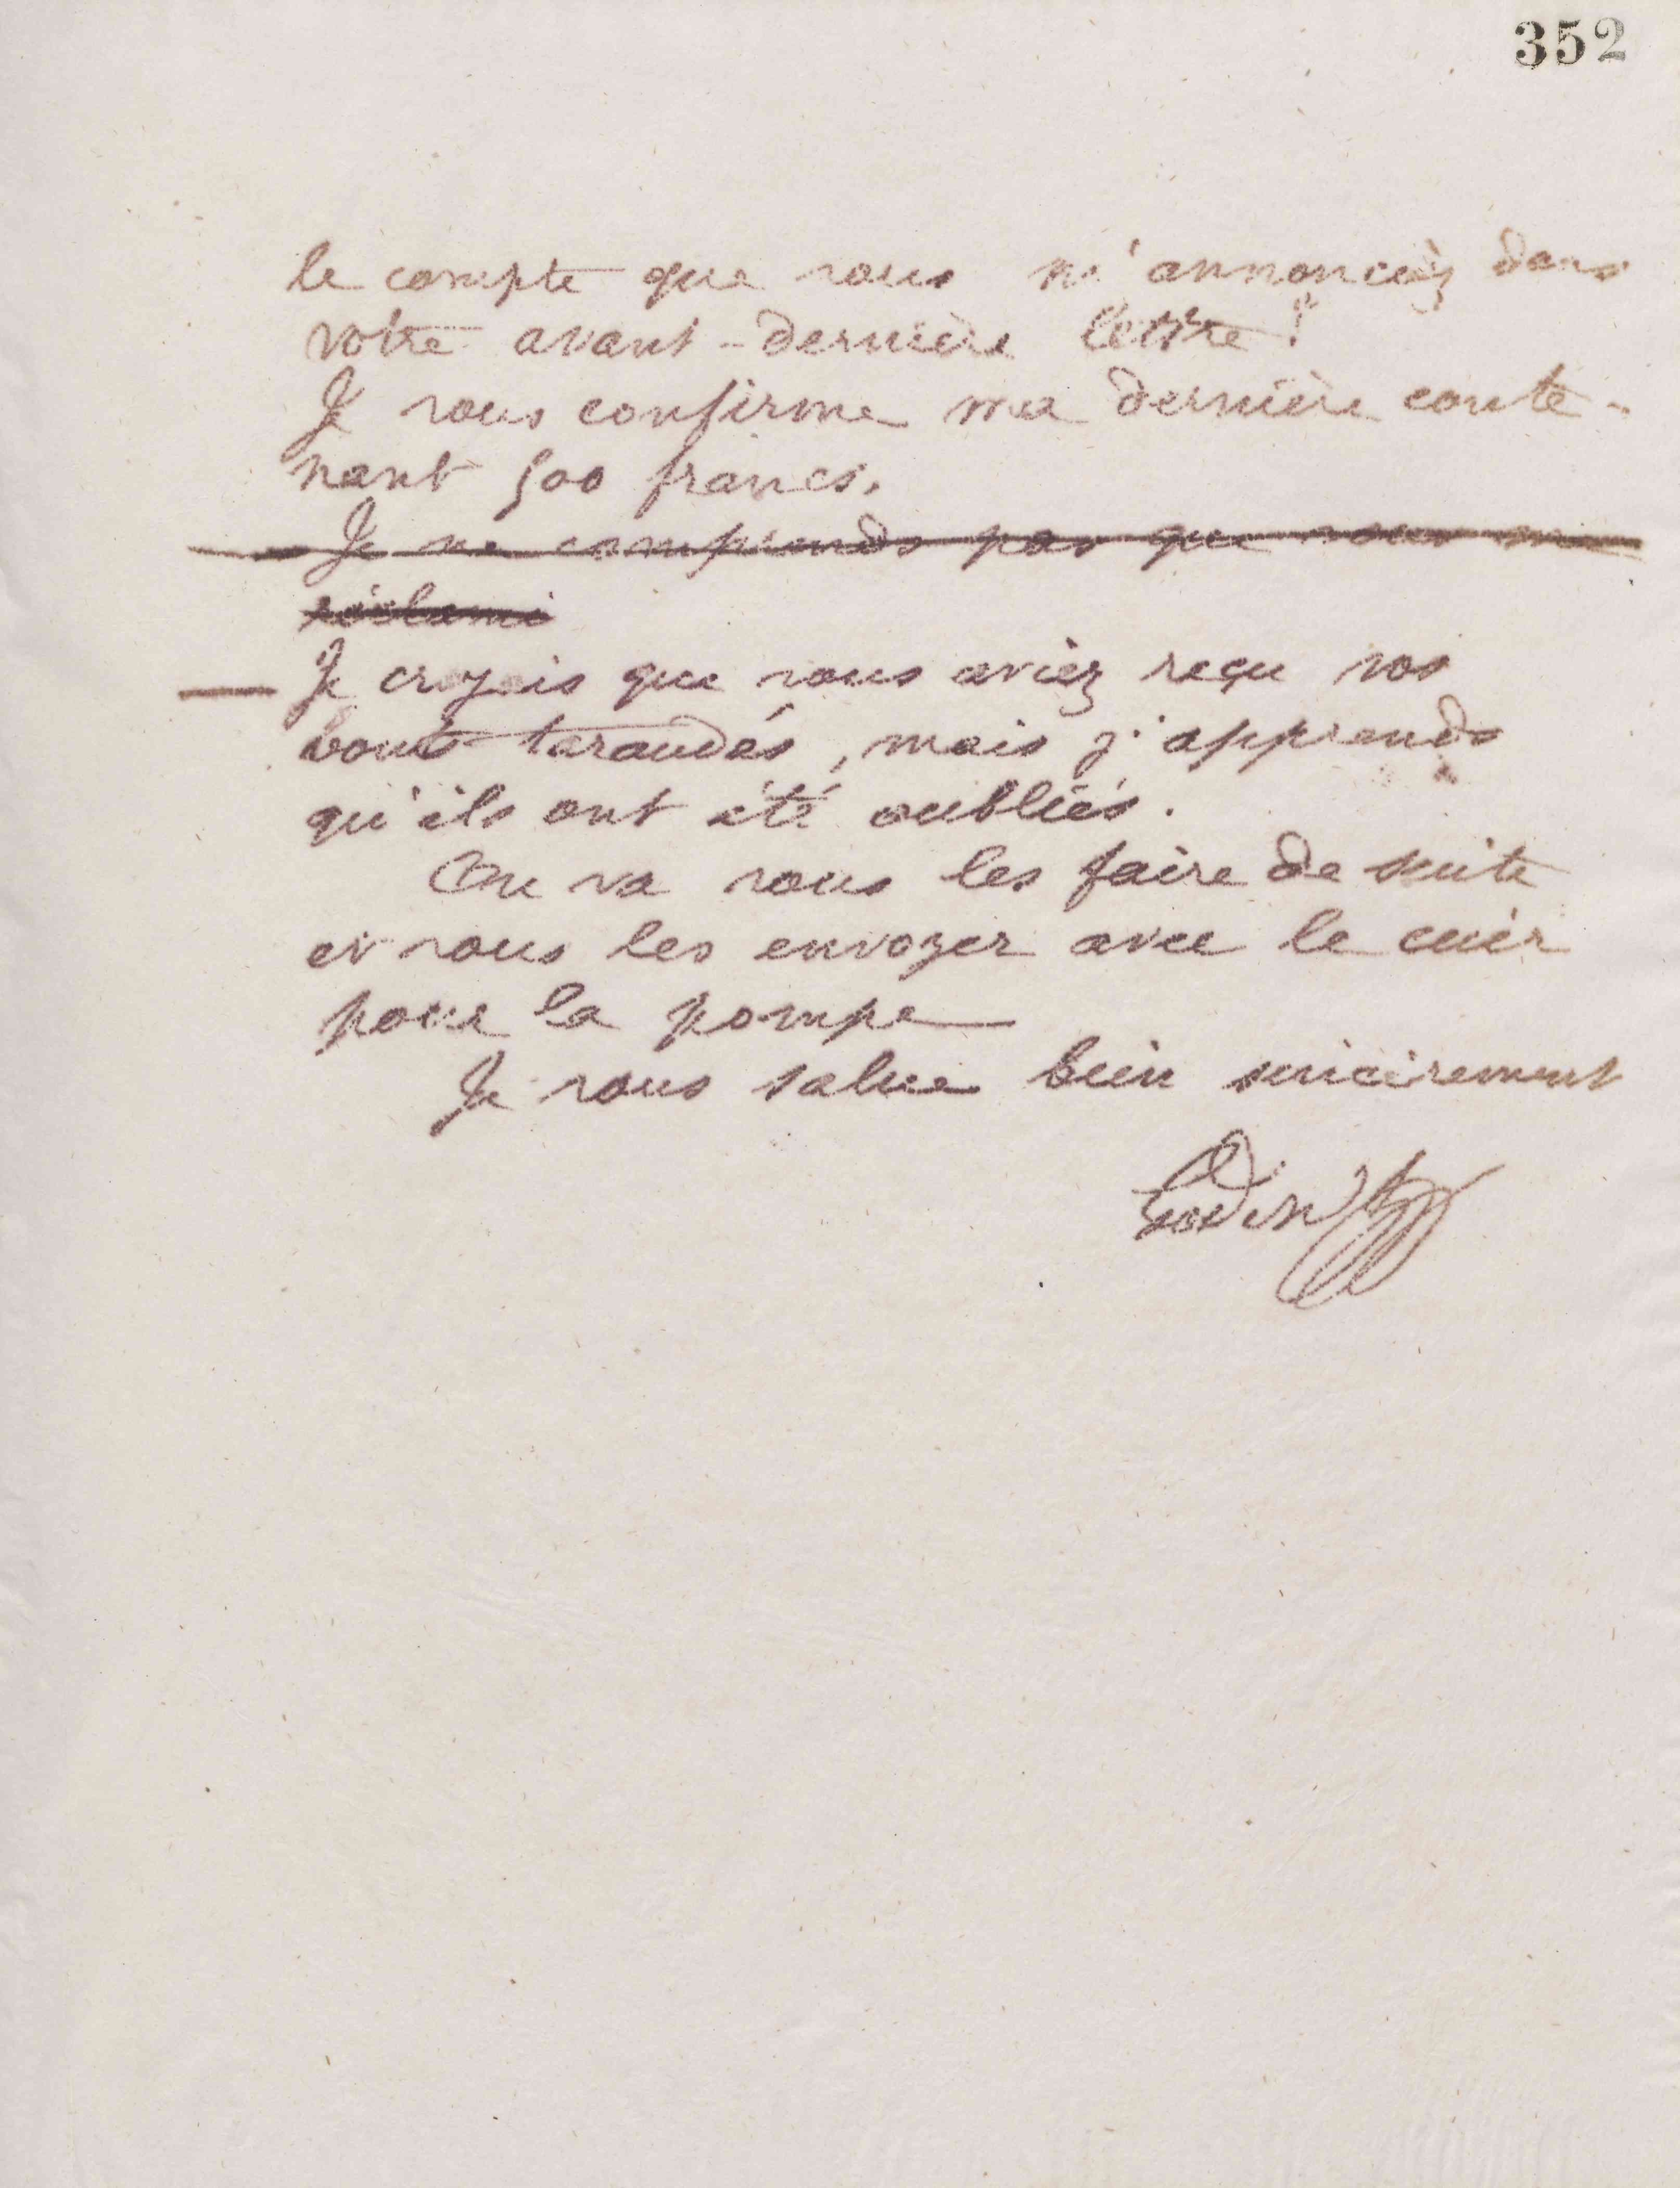 352
le compte que vous m'annonciez dans
votre avant-dernière lettre?
Je vous confirme ma dernière conte-
nant 500 francs.
Je ne comprends pas que vous me
réclami
— Je croyais que vous aviez reçu vos
bouts taraudés, mais j'apprends
qu'ils ont été oubliés.
On va vous les faire de suite
et vous les envoyer avec le cuir
pour la pompe
Je vous salue bien sincèrement
Godin